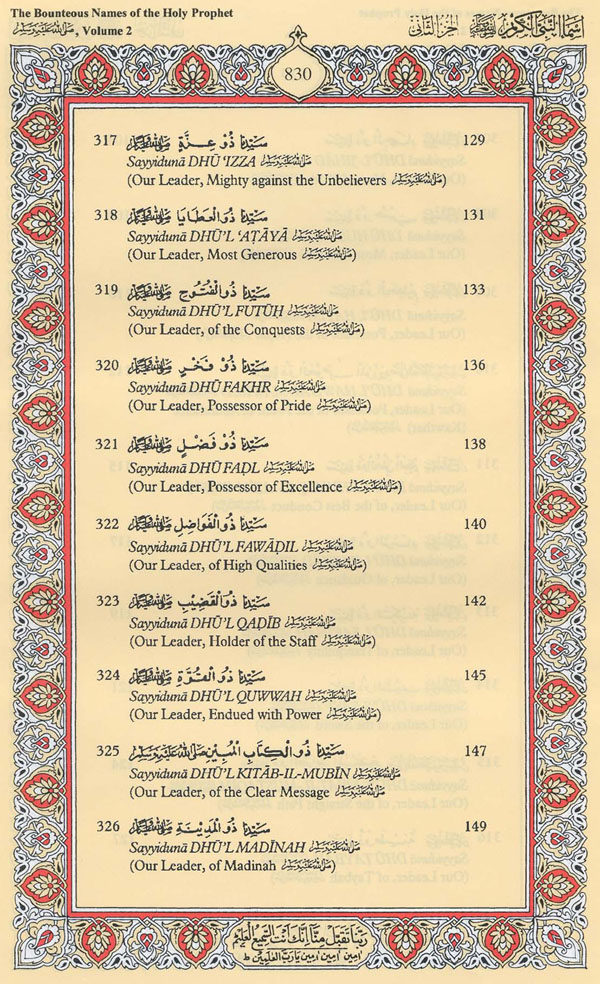 The Bounteous Names of the Holy Prophet
ﷺ, Volume 2
اسماء النبي الكريم ﷺ الجزء الثاني
830
317 سَيِّدُنَا ذُوْ عِزَّةٍ ﷺ 129
Sayyidunā DHŪ ‘IZZA ﷺ
(Our Leader, Mighty against the Unbelievers ﷺ)
318 سَيِّدُنَا ذُو الْعَطَايَا ﷺ 131
Sayyidunā DHŪ’L ‘AṬĀYĀ ﷺ
(Our Leader, Most Generous ﷺ)
319 سَيِّدُنَا ذُو الْفُتُوْحِ ﷺ 133
Sayyidunā DHŪ’L FUTŪḤ ﷺ
(Our Leader, of the Conquests ﷺ)
320 سَيِّدُنَا ذُوْ فَخْرٍ ﷺ 136
Sayyidunā DHŪ FAKHR ﷺ
(Our Leader, Possessor of Pride ﷺ)
321 سَيِّدُنَا ذُوْ فَضْلٍ ﷺ 138
Sayyidunā DHŪ FAḌL ﷺ
(Our Leader, Possessor of Excellence ﷺ)
322 سَيِّدُنَا ذُو الْفَوَاضِلِ ﷺ 140
Sayyidunā DHŪ’L FAWĀḌIL ﷺ
(Our Leader, of High Qualities ﷺ)
323 سَيِّدُنَا ذُو الْقَضِيْبِ ﷺ 142
Sayyidunā DHŪ’L QAḌĪB ﷺ
(Our Leader, Holder of the Staff ﷺ)
324 سَيِّدُنَا ذُو الْقُوَّةِ ﷺ 145
Sayyidunā DHŪ’L QUWWAH ﷺ
(Our Leader, Endued with Power ﷺ)
325 سَيِّدُنَا ذُو الْكِتَابِ الْمُبِيْنِ ﷺ 147
Sayyidunā DHŪ’L KITĀB-IL-MUBĪN ﷺ
(Our Leader, of the Clear Message ﷺ)
326 سَيِّدُنَا ذُو الْمَدِيْنَةِ ﷺ 149
Sayyidunā DHŪ’L MADĪNAH ﷺ
(Our Leader, of Madinah ﷺ)
رَبَّنَا تَقَبَّلْ مِنَّا اِنَّكَ اَنْتَ السَّمِيْعُ الْعَلِيْمُ
اٰمِيْن اٰمِيْن اٰمِيْن يَا رَبَّ الْعٰلَمِيْنَ ط